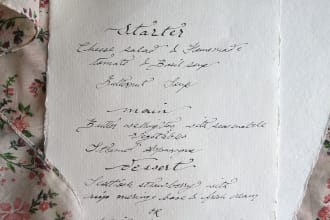 Starter
Cheese salad & Homemade
tomato & Basil soup
Butternut Soup
main
Butter wellington with seasonable
vegetables
dessert
Scottish strawberry's with
meringue & fresh cream
OR